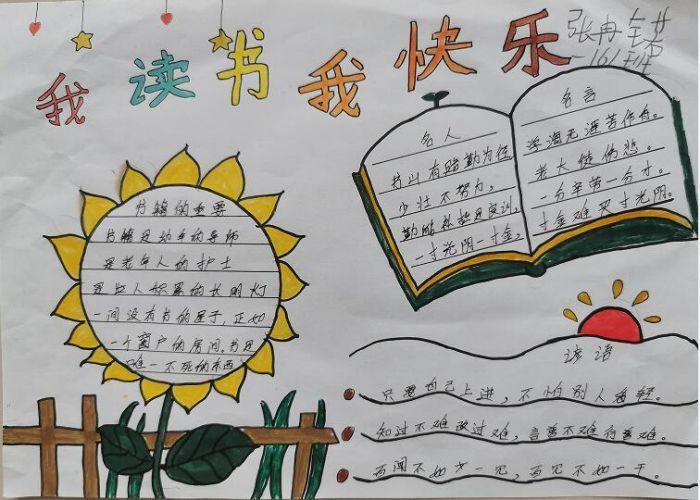 我读书我快乐
张冉
161班
书籍的重要
书籍是幼年的导师
是老年人的护士
是立人积累的长明灯
一间没有书的屋子，正如
一个窗户的房间。书是
唯一不死的东西
名人
书山有路勤为径
少壮不努力，
勤能补拙是良训，
一寸光阴一寸金，
名言
学海无涯苦作舟。
老大徒伤悲。
一分辛劳一分才。
寸金难买寸光阴。
谚语
只要自己上进，不怕别人看轻。
知过不难改过难，言善不难行善难。
百闻不如一见，百见不如一干。